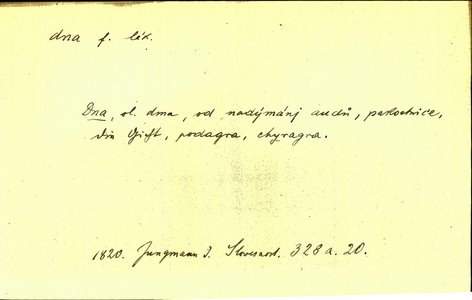 dna f. lék.
Dna, vl. dma, od nadýmánj audů, pakostnice,
die Gicht, podagra, chyragra.
1820. Jungmann J. Slovesnost. 328 a. 20.